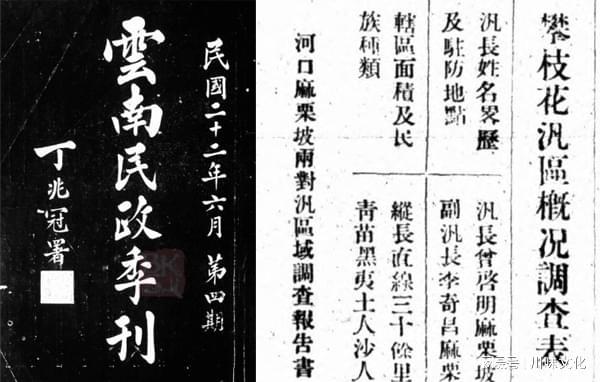 民國二十二年六月 第四期
雲南民政季刊
丁兆冠署
攀枝花汛區概况調查表
汛長姓名畧歷
及駐防地點
轄區面積及民
族種類
汛長曾啓明麻栗坡
副汛長李奇昌麻栗
縱長直線三十餘里
青苗黑夷土人沙人
河口麻栗坡兩對汛區域調查報告書
搜狐号@川味文化